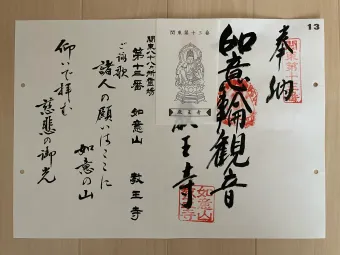 13
奉納
関東第十三番
如意輪観音
王寺
如意山
関東第十三番
関東八十八ヵ所霊場
第十三番 如意山 教王寺
ご詠歌
諸人の願いはここに
如意の山
仰いで拝む
慈悲の御光